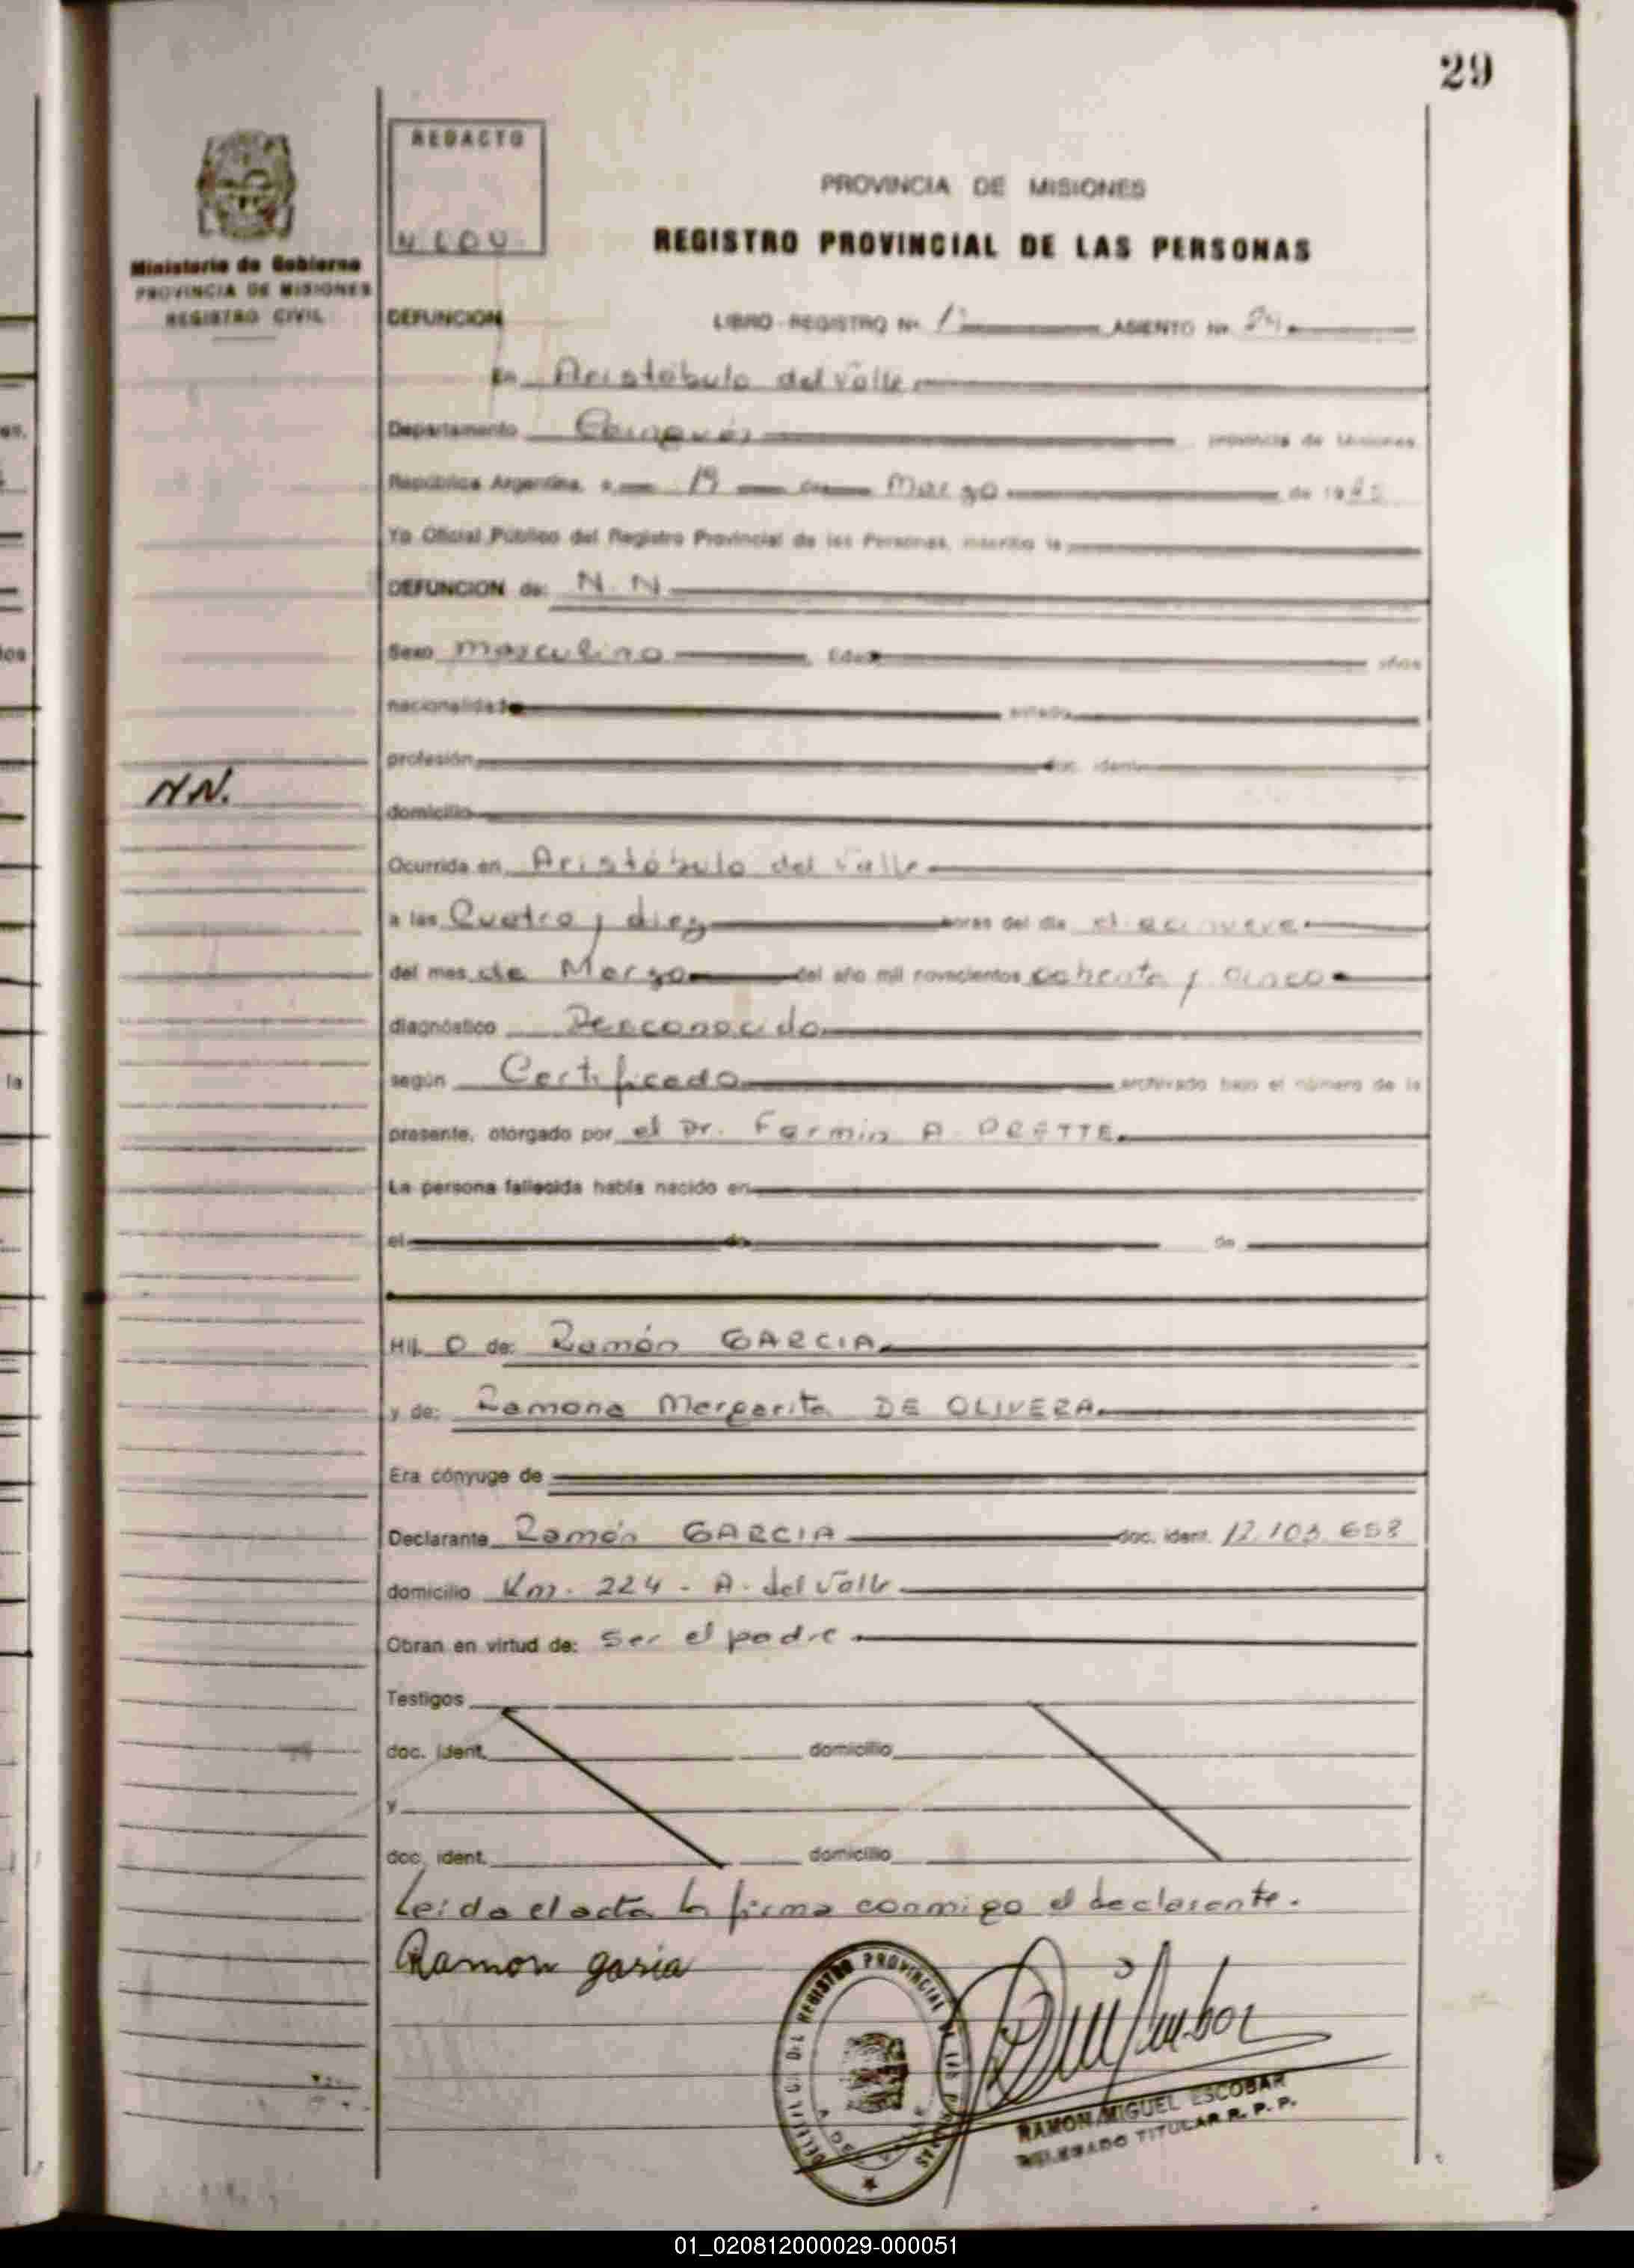 29
REDACTO
PROVINCIA DE MISIONES
REGISTRO PROVINCIAL DE LAS PERSONAS
Ministerio de Gobierno
PROVINCIA DE MISIONES
REGISTRO CIVIL
DEFUNCION LIBRO-REGISTRO Nº ASIENTO Nº
en Aristóbulo del Valle
Departamento Cainguás provincia de Misiones
República Argentina, a 19 de Marzo de 19
Yo Oficial Público del Registro Provincial de las Personas, inscribo la
DEFUNCION de: N. N
Sexo masculino Edad años
nacionalidad estado
profesión doc. ident.
N.N.
domicilio
Ocurrida en Aristóbulo del Valle
a las Cuatro y diez horas del día
del mes de Marzo del año mil novecientos ochenta y cinco
diagnóstico Desconocido
según Certificado archivado bajo el número de la
presente, otorgado por el Dr. Fermin A.
La persona fallecida había nacido en
el de de
Hij o de: Ramón GARCIA
y de: Ramona Margarita DE OLIVERA
Era cónyuge de
Declarante Ramón GARCIA doc. ident.
domicilio Km. 224 - A. del Valle
Obran en virtud de: Ser el padre
Testigos
doc. ident. domicilio
y
doc. ident. domicilio
Leida el acta la firma conmigo el declarante.
Ramon garia
RAMON MIGUEL ESCOBAR
DELEGADO TITULAR R. P. P.
01_020812000029-000051